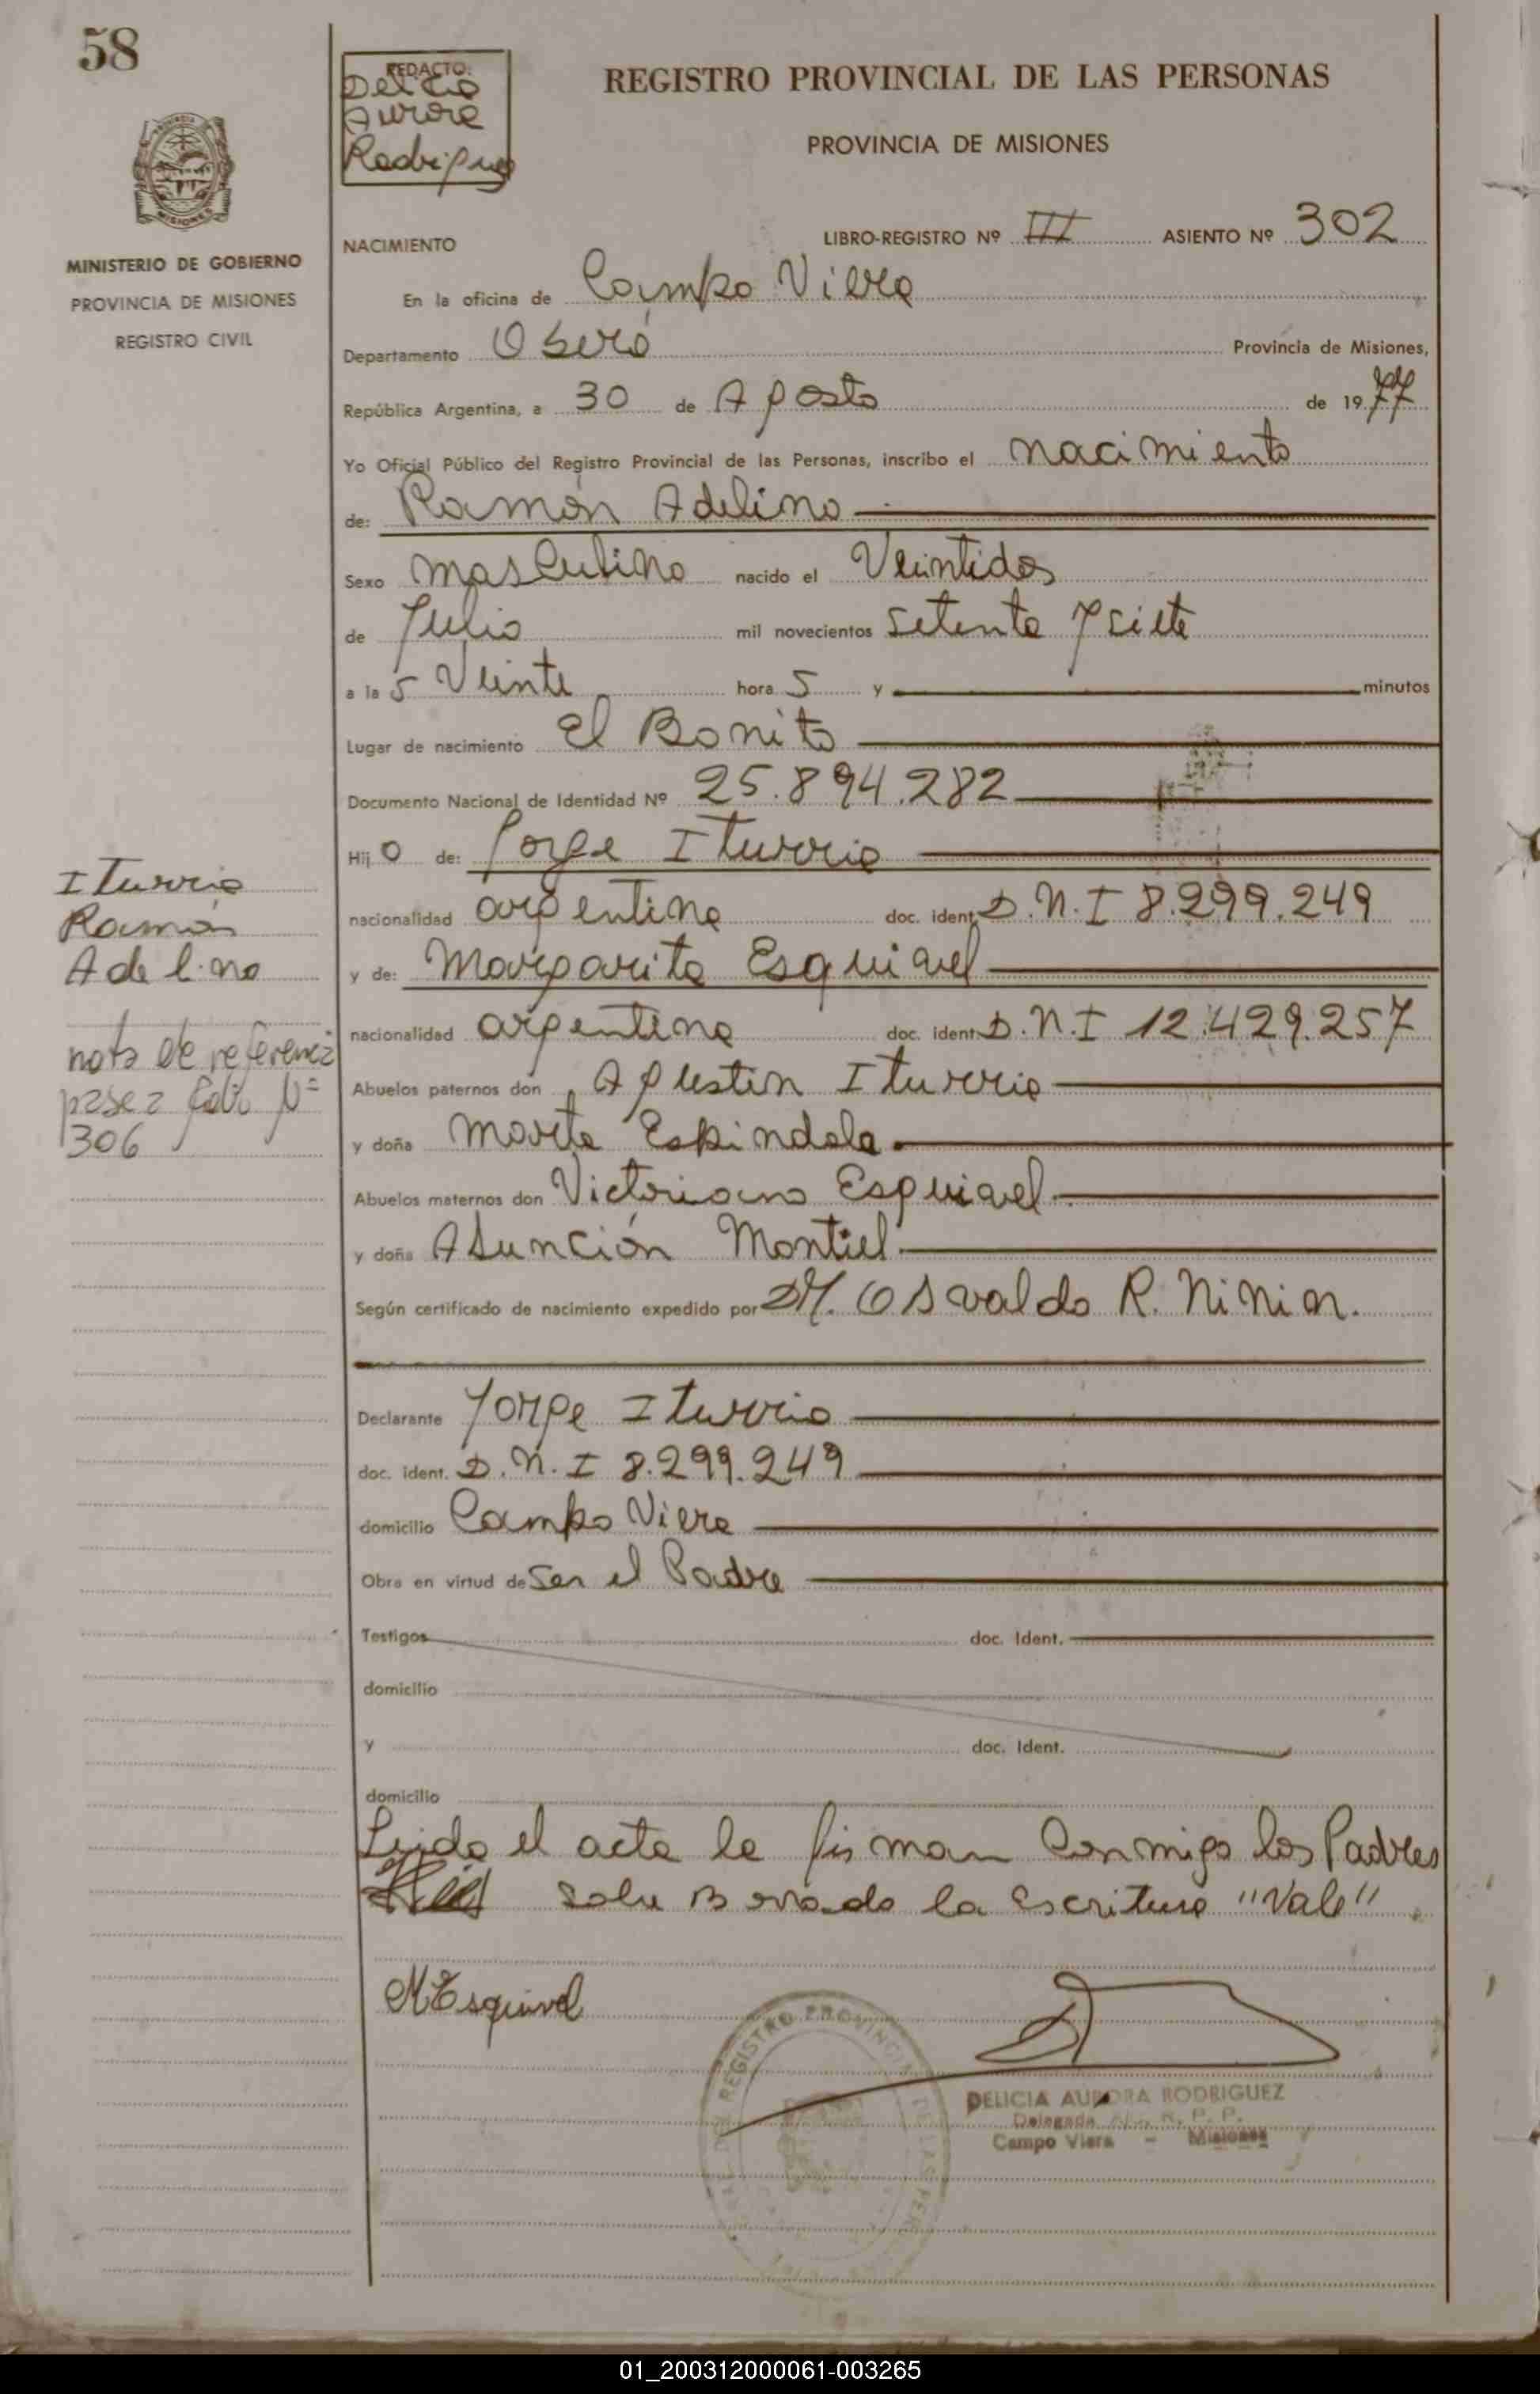 58
REDACTO:
Delicia
Aurora
Rodriguez
REGISTRO PROVINCIAL DE LAS PERSONAS
PROVINCIA DE MISIONES
MISIONES
MINISTERIO DE GOBIERNO
PROVINCIA DE MISIONES
REGISTRO CIVIL
NACIMIENTO
LIBRO-REGISTRO Nº III ASIENTO Nº 302
En la oficina de Campo Viera
Departamento Oberá Provincia de Misiones,
República Argentina, a 30 de Agosto de 1977
Yo Oficial Público del Registro Provincial de las Personas, inscribo el nacimiento
de: Ramón Adelino
Sexo masculino nacido el Veintidos
de Julio mil novecientos setenta y siete
a la s Veinte hora s y minutos
Lugar de nacimiento El Bonito
Documento Nacional de Identidad Nº 25.894.282
Hij o de: Jorge Iturrio
nacionalidad argentina doc. ident. D.N.I 8.299.249
y de: Margarita Esquivel
nacionalidad argentina doc. ident. D.N.I 12.429.257
Abuelos paternos don Agustin Iturrio
y doña Marta Espindola
Abuelos maternos don Victoriano Esquivel
y doña Asunción Montiel
Según certificado de nacimiento expedido por Dr. Osvaldo R. Ninin.
Iturrio
Ramón
Adelino
nota de referencia
pase a folio Nº
306
Declarante Jorge Iturrio
doc. ident. D.N.I 8.299.249
domicilio Campo Viera
Obra en virtud de Ser el Padre
Testigos doc. Ident.
domicilio
y doc. Ident.
domicilio
Leida el acta la firman Conmigo los Padres
Sobre Borrado la escritura "Vale".
M Esquivel
REGISTRO PROVINCIAL DE LAS PERSONAS
DELICIA AURORA RODRIGUEZ
Delegada R. P. P.
Campo Viera - Misiones
01_200312000061-003265